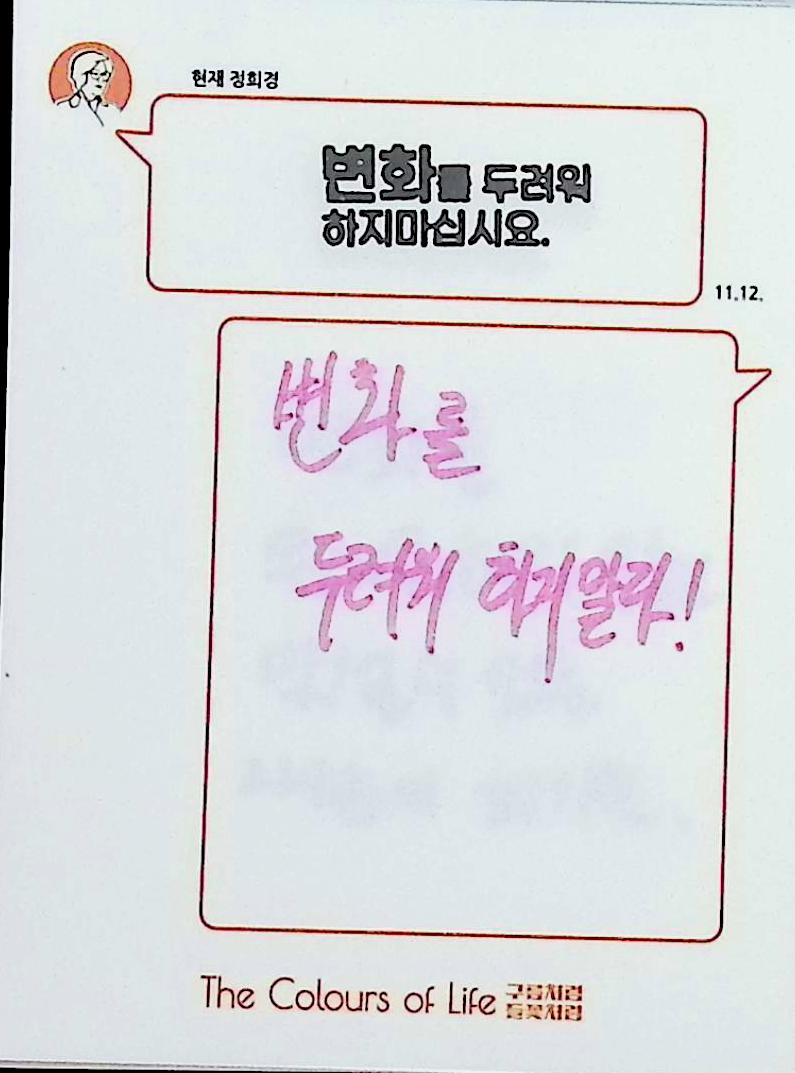 현재 정희경
변화를 두려워
하지마십시요.
11.12.
변화를
두려워 하지 말라!
The Colours of Life 구름처럼
들꽃처럼